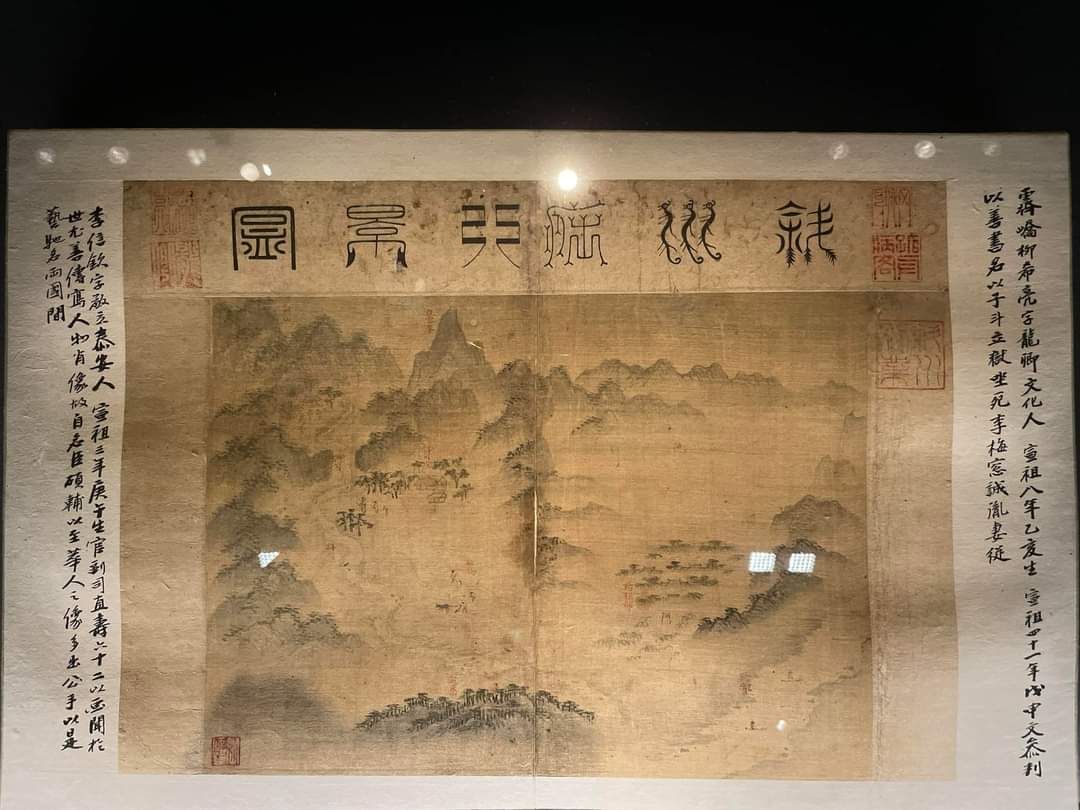 斜川莊八景圖
霽嶠柳希亮字龍卿文化人 宣祖八年乙亥生 宣祖四十一年戊申文叅判
以善書名以子斗立獄坐死李梅窓誠胤妻從
李信欽字敬立泰安人 宣祖三年庚午生官到司直壽六十二以画聞於
世尤善傳寫人物肖像故自名臣碩輔以至華人之像多出公手以是
藝馳名兩國間